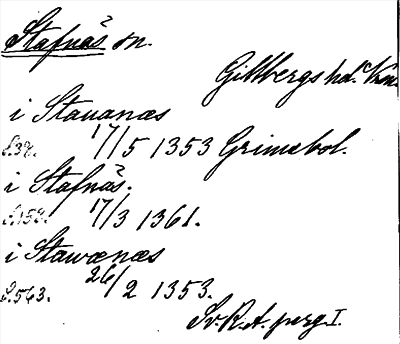 Stafnäs sn.
Gillbergs hd. Vrm.
i Stauanæs
s. 38. 17/5 1353 Grimsbol.
i Stafnäs.
s. 158. 17/3 1361.
i Stawænæs
s. 563. 26/2 1353.
Sv. R. A. perg. I.